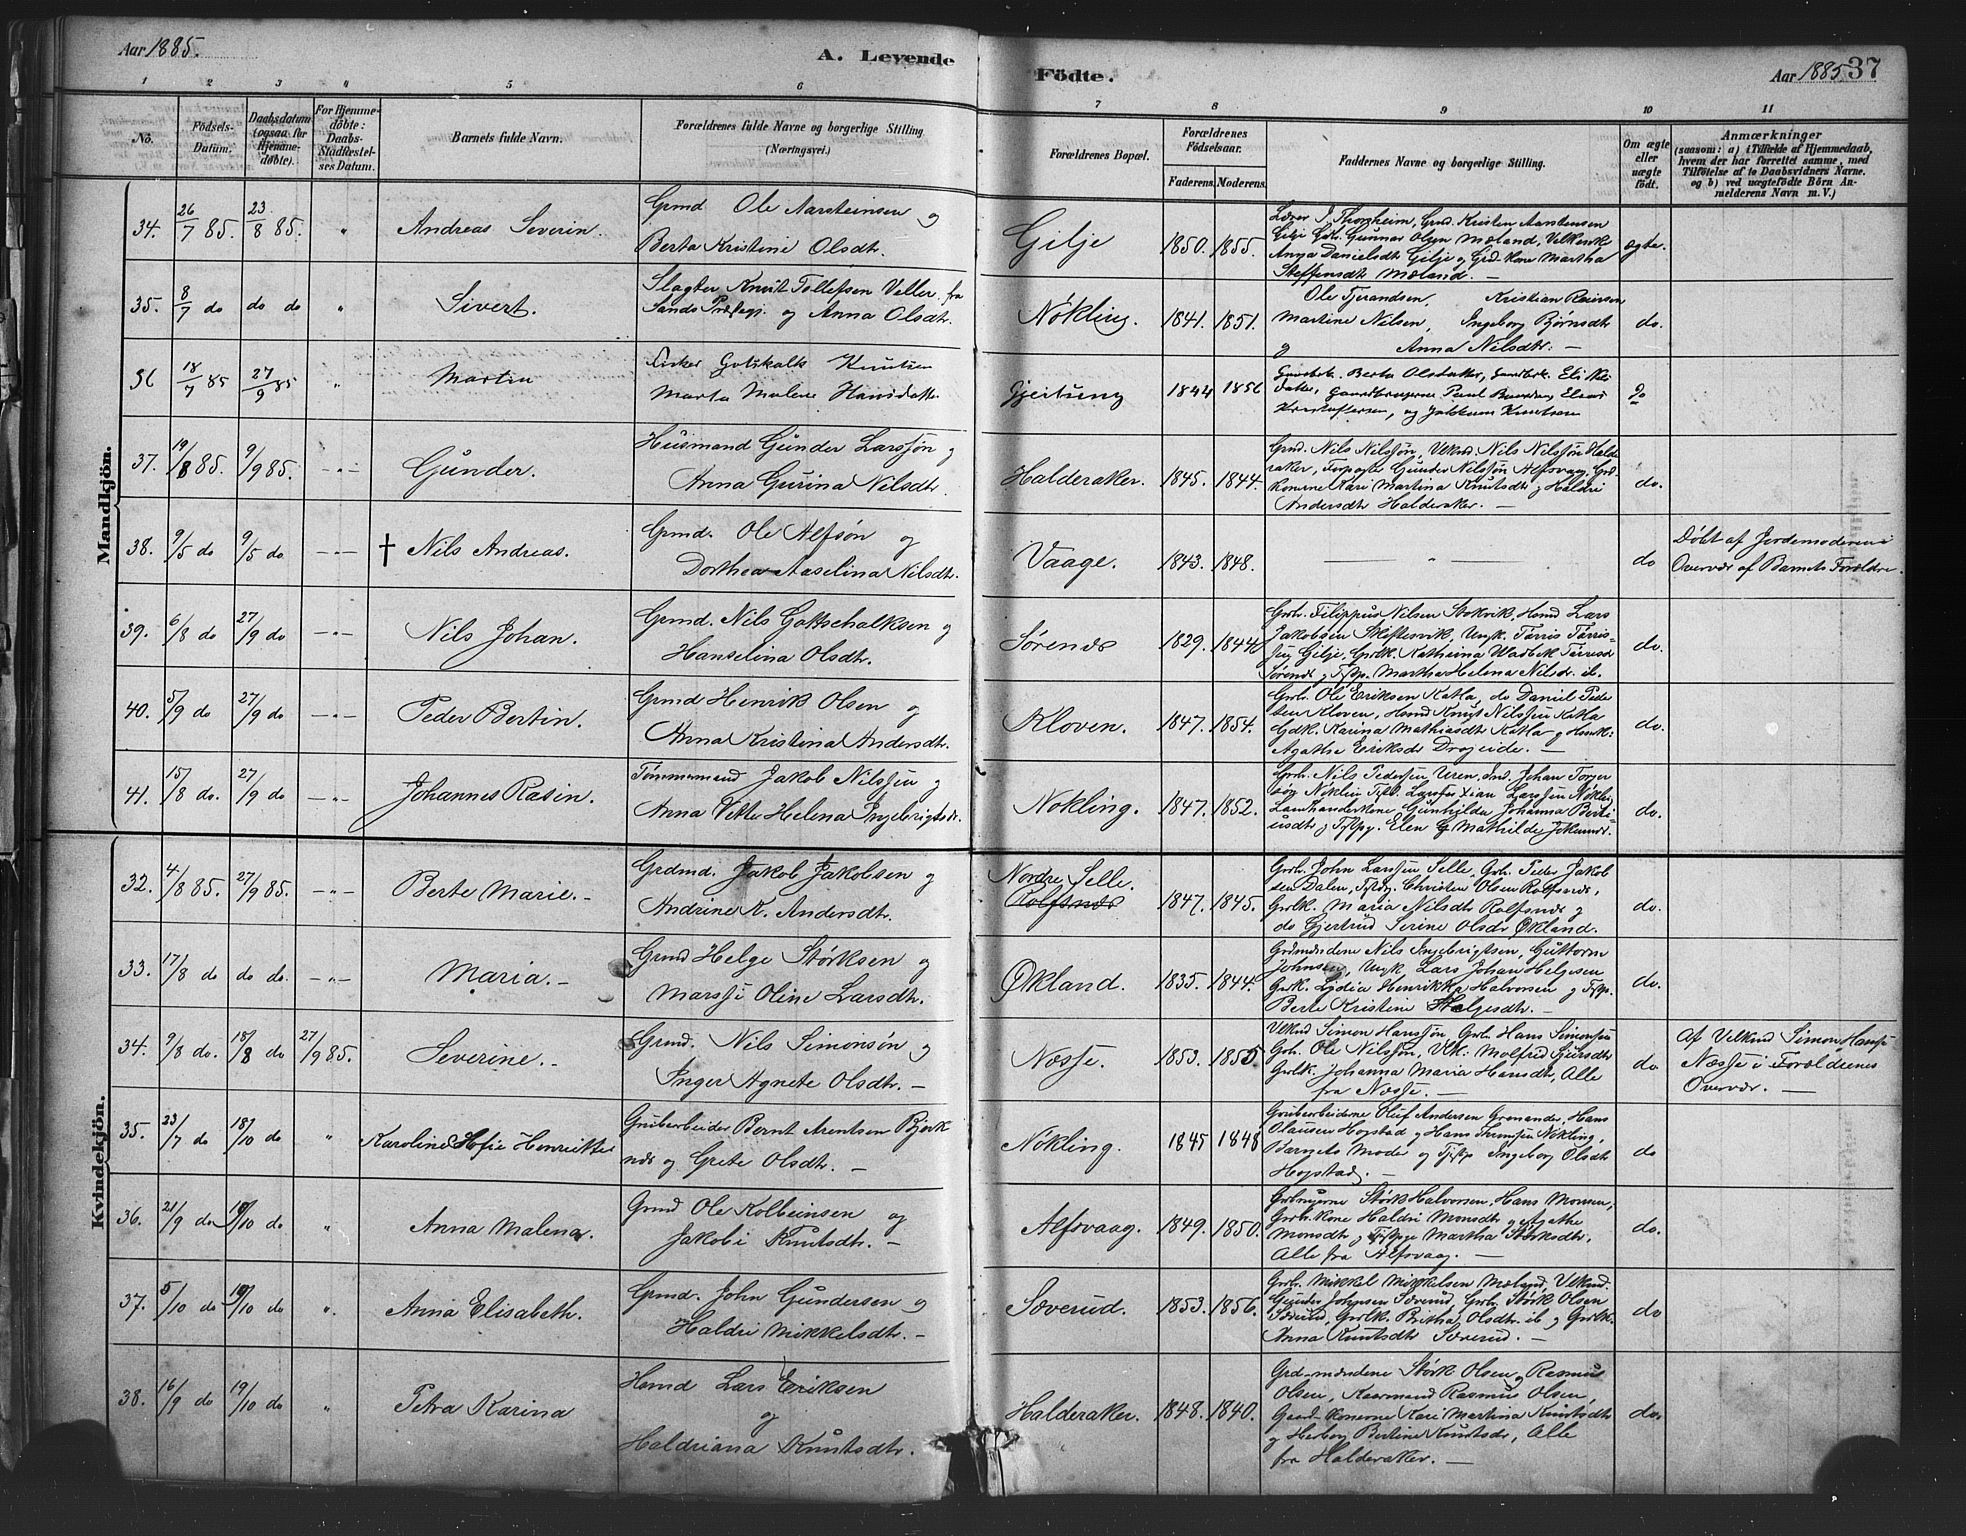 Aar 1885.
A. Levende
Födte.
Aar 1885 37
1 2 3 4 5 6 7 8 9 10 11
No.
Födsels-
Datum.
Daabsdatum
(ogsaa for
Hjemme-
döbte).
For Hjemme-
döbte:
Daabs-
Stadfæstel-
ses Datum.
Barnets fulde Navn.
Forældrenes fulde Navne og borgerlige Stilling
(Næringsvei.)
Forældrenes Bopæl.
Forældrenes
Födselsaar.
Faderens. Moderens.
Faddernes Navne og borgerlige Stilling.
Om ægte
eller
uægte
födt.
Anmærkninger
(saasom: a) i Tilfælde af Hjemmedaab,
hvem der har forrettet samme, med
Tilföielse af to Daabsvidners Navne.
og b) ved uægtefödte Börn An-
melderens Navn m. V.)
Mandkjön.
34. 26/7 85. 23/8 85. " Andreas Severin.
Grmd Ole Aarsteinsen og
Berta Kristine Olsdtr.
Gilje 1850. 1855.
Lærer J. Thorsheim, Grd. Kristen Aarstensen
Gilje Gdr. Gunnar Olsen Mæland,
Anna Danielsdt Gilje og Grd. kone Martha
Steffensdt Mæland. —
ægte.
35. 8/7 do do do " Sivert.
Slagter Knut Tollefsen Veller fra
Sands Præstegj. og Anna Olsdtr.
Nökling. 1841. 1851.
Ole Tjerandsen, Kristian
Martine Nilsen, Ingeborg Bjørnsdt
og Anna Nilsdtr. —
do.
36 18/7 85 27/9 85 " Martin
Gotskalk Knutsen
Marta Malene Hansdatter
Gjeitung 1844 1856
Berta Olsdatter,
datter, Gaardbrugerne Paul
Kristoffersen, og Knutsen
Do
37. 19/8 85. 9/9 85. —"— Gunder.
Husmand Gunder Larssön og
Anna Gurina Nilsdtr.
Halderaker. 1845. 1844.
Grd. Nils Nilssön, Nils Nilssön Halde
raker, Gunder Nilssön Alfsvaag, Grd.
konerne Kari Martina Knutsdtr og Haldri
Andersdt Halderaker. —
do.
38. 9/5 do 9/5 do —"— † Nils Andreas.
Grmd. Ole Alfsön og
Dorthea Aaselina Nilsdtr.
Vaage. 1843. 1848.
— " —
do
Döbt af Jordemoderen i
Overvær af Barnets Forældre.
39. 6/8 do 27/9 do —"— Nils Johan.
Grmd. Nils Gottschalksen og
Hanselina Olsdtr.
Sørenæs 1829. 1844
Grb. Filippus Nilsen Stokvik, Hmd Lars
Jakobsen Skiftesvik, Ungk. Tørris Tørris-
sen Gilje, Grlk. Kathrina
Martha Helena Nilsdr. ib.
do.
40. 5/9 do 27/9 do —"— Peder Bertin.
Grmd Henrik Olsen og
Anna Kristina Andersdtr.
Kloven. 1847. 1854.
Grb. Ole Eriksen Katla, do Daniel Peder
sen Kloven, Hmd Knut Nilssen Katla
Karina Mathiasdt Katla og
Agathe Eriksdt Drageide. —
do.
41. 15/8 do. 27/9 do —"— Johannes Rasin.
Tömmermand Jakob Nilssen og
Anna Helena Ingebrigtsdr.
Nökling. 1847. 1852.
Grb. Nils Pedersen Uren, Johan
Gunhilde Johanna
Elen Mathilde
do.
Kvindekjön.
32. 4/8 85. 27/9 85. —"— Berte Marie. —
Grdmd. Jakob Jakobsen og
Andrine K. Andersdtr.
Nordre Selle.
Rolfsnæs 1847. 1845.
Grb. John Larssen Selle, Grb. Peder Jakob
sen Dalen, Christen Olsen Rolfsnæs,
Grlk. Maria Nilsdtr Rolfsnæs og
do Gjertrud Serine Olsdr Økland.
do.
33. 17/8 do do do. —"— Maria. —
Grmd Helge Størksen og
Oline Larsdtr.
Økland. 1835. 1844.
Grdmændene Nils Ingebrigtsen, Guttorm
Johnsen, Ungk Lars Johan Helgesen
Grlk. Lydia Henrikke Halvorsen og
Berte Kristine Helgesdtr. —
do.
34. 9/8 do. 18/8 do 27/9 85. Severine. —
Grmd. Nils Simonsön og
Inger Agnete Olsdtr. —
Næsse. 1853. 1855
Simon Hanssön Grb. Hans Simonsen
Grb. Ole Nilssön, Molfrid
Grlk. Johanna Maria Hansdt, Alle
fra Næsse. —
do
Af Simon Hanssen
Næsse i Forældrenes
Overvær. —
35. 23/7 do 18/10 do " Karoline Sofie Henriette
Grubearbeider Bernt Arentsen Bjerk
næs og Grete Olsdtr. —
Nökling. 1845 1848
Grubearbeiderne Oluf Andersen Hans
Olausen Hopstad og Hans Nökling,
Barnets Moder og Ingeborg Olsdtr
Hopstad. —
do
36. 21/9 do 18/10 do " Anna Malena.
Grmd Ole Kolbeinsen og
Jakobi Knutsdtr. —
Alfsvaag. 1849. 1850.
Størk Halvorsen, Hans Monsen,
Grb. kone Haldri Monsdtr og Agathe
Monsdtr og Martha Størksdtr,
Alle fra Alfsvaag. —
do.
37. 5/10 do 10 do " Anna Elisabeth.
Grmd. John Gundersen og
Haldri Mikkelsdtr. —
Sæverud. 1853. 1856.
Grb. Mikkel Mikkelsen Mæland,
Gunder Johnsen Sæverud, Grb. Størk Olsen
Sæverud, Grlk. Britha Olsdtr. ib og Grlk.
Anna Knutsdtr Sæverud. —
do
38. 16/9 do 19/10 do " Petra Karina
Hsmd Lars Eriksen
og
Haldriana Knutsdtr.
Halderaker. 1848. 1840.
Grd-mændene Størk Olsen og Rasmus
Olsen, Kaarmand Rasmus Olsen,
Gaard-konerne Kari Martina Knutsdtr
og Herborg Bertine Knutsdr, Alle
fra Halderaker. —
do.